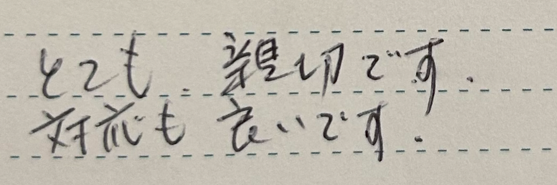 とても、親切です.
対応も良いです.